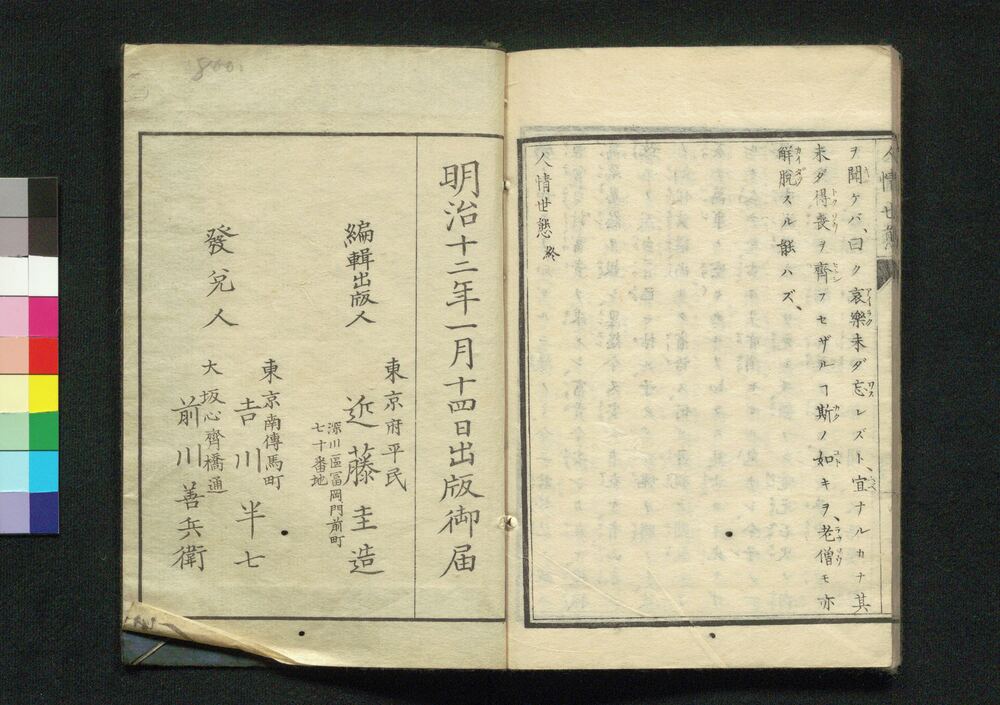 人情世態
ヲ聞ケバ、曰ク哀樂未ダ忘レズト、宜ナルカナ其
未ダ得喪ヲ齊フセザルヿ斯ノ如キヲ、老僧モ亦
解脱スル能ハズ、
人情世態 終
明治十二年一月十四日出版御届
編輯出版人
東京府平民
近藤圭造
深川區冨岡門前町
七十番地
發兌人
東京南傳馬町
吉川半七
大坂心齊橋通
前川善兵衛